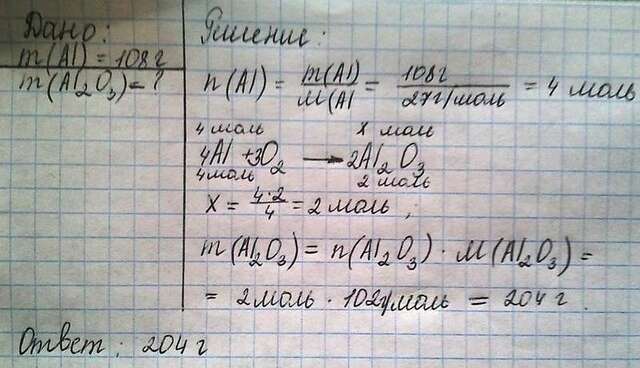 Дано:
m(Al) = 108 г
m(Al2O3) = ?
Решение:
n(Al) = m(Al) / M(Al = 108 г / 27 г/моль = 4 моль
4 моль x моль
4Al + 3O2 → 2Al2O3
4 моль 2 моль
x = 4·2 / 4 = 2 моль ;
m(Al2O3) = n(Al2O3) · M(Al2O3) =
= 2 моль · 102 г/моль = 204 г.
Ответ: 204 г